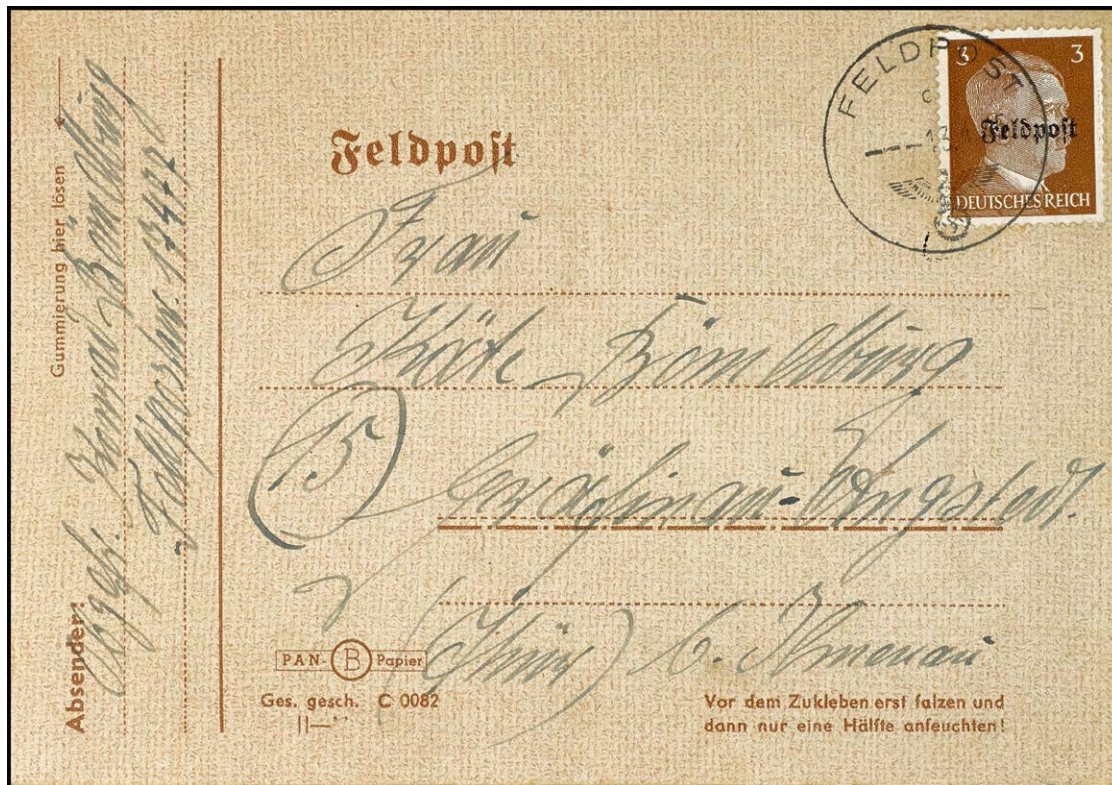 Gummierung hier lösen
Absender: Ogefr. Konrad Bömelburg
Feldpostnr. 13477
FELDPOST
3 3
Feldpost
DEUTSCHES REICH
Feldpost
Frau
Käte Bömelburg
(15) Gräfinau-Angstedt.
(Thür) b. Ilmenau
PAN- B Papier
Ges. gesch. C 0082
Vor dem Zukleben erst falzen und
dann nur eine Hälfte anfeuchten!